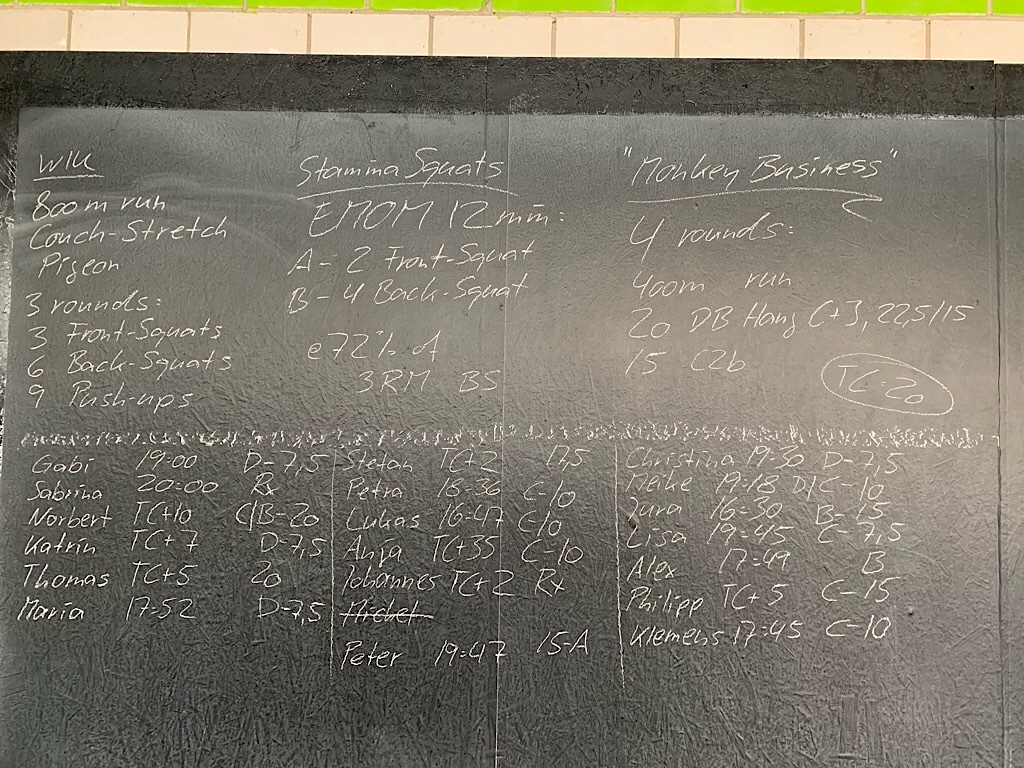 WU
800m run
Couch-Stretch
Pigeon
3 rounds:
3 Front-Squats
6 Back-Squats
9 Push-ups
Stamina Squats
EMOM 12 min:
A - 2 Front-Squat
B - 4 Back-Squat
@72% of
3RM BS
"Monkey Business"
4 rounds:
400m run
20 DB Hang C+J, 22,5/15
15 C2b
TC=20
Gabi 19:00 D-7,5
Sabrina 20:00 Rx
Norbert TC+10 C/B-20
Katrin TC+7 D-7,5
Thomas TC+5 20
Maria 17:52 D-7,5
Stefan TC+2 17,5
Petra 18:36 C-10
Lukas 16:47 C-10
Anja TC+35 C-10
Johannes TC+2 Rx
Michel
Peter 19:47 15-A
Christina 19:30 D-7,5
Meike 19:18 D/C-10
Jura 16:30 B-15
Lisa 19:45 C-7,5
Alex 17:49 B
Philipp TC+5 C-15
Klemens 17:45 C-10